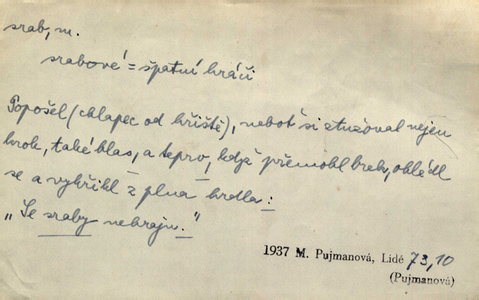 srab, m.
srabové = špatní hráči
Popošel (chlapec od hřiště), neboť si ztužoval nejen
krok, také hlas, a teprv, když přemohl brek, ohlédl
se a vykřikl z plna hrdla:
„Se sraby nehraju."
1937 M. Pujmanová, Lidé 73,10
(Pujmanová)